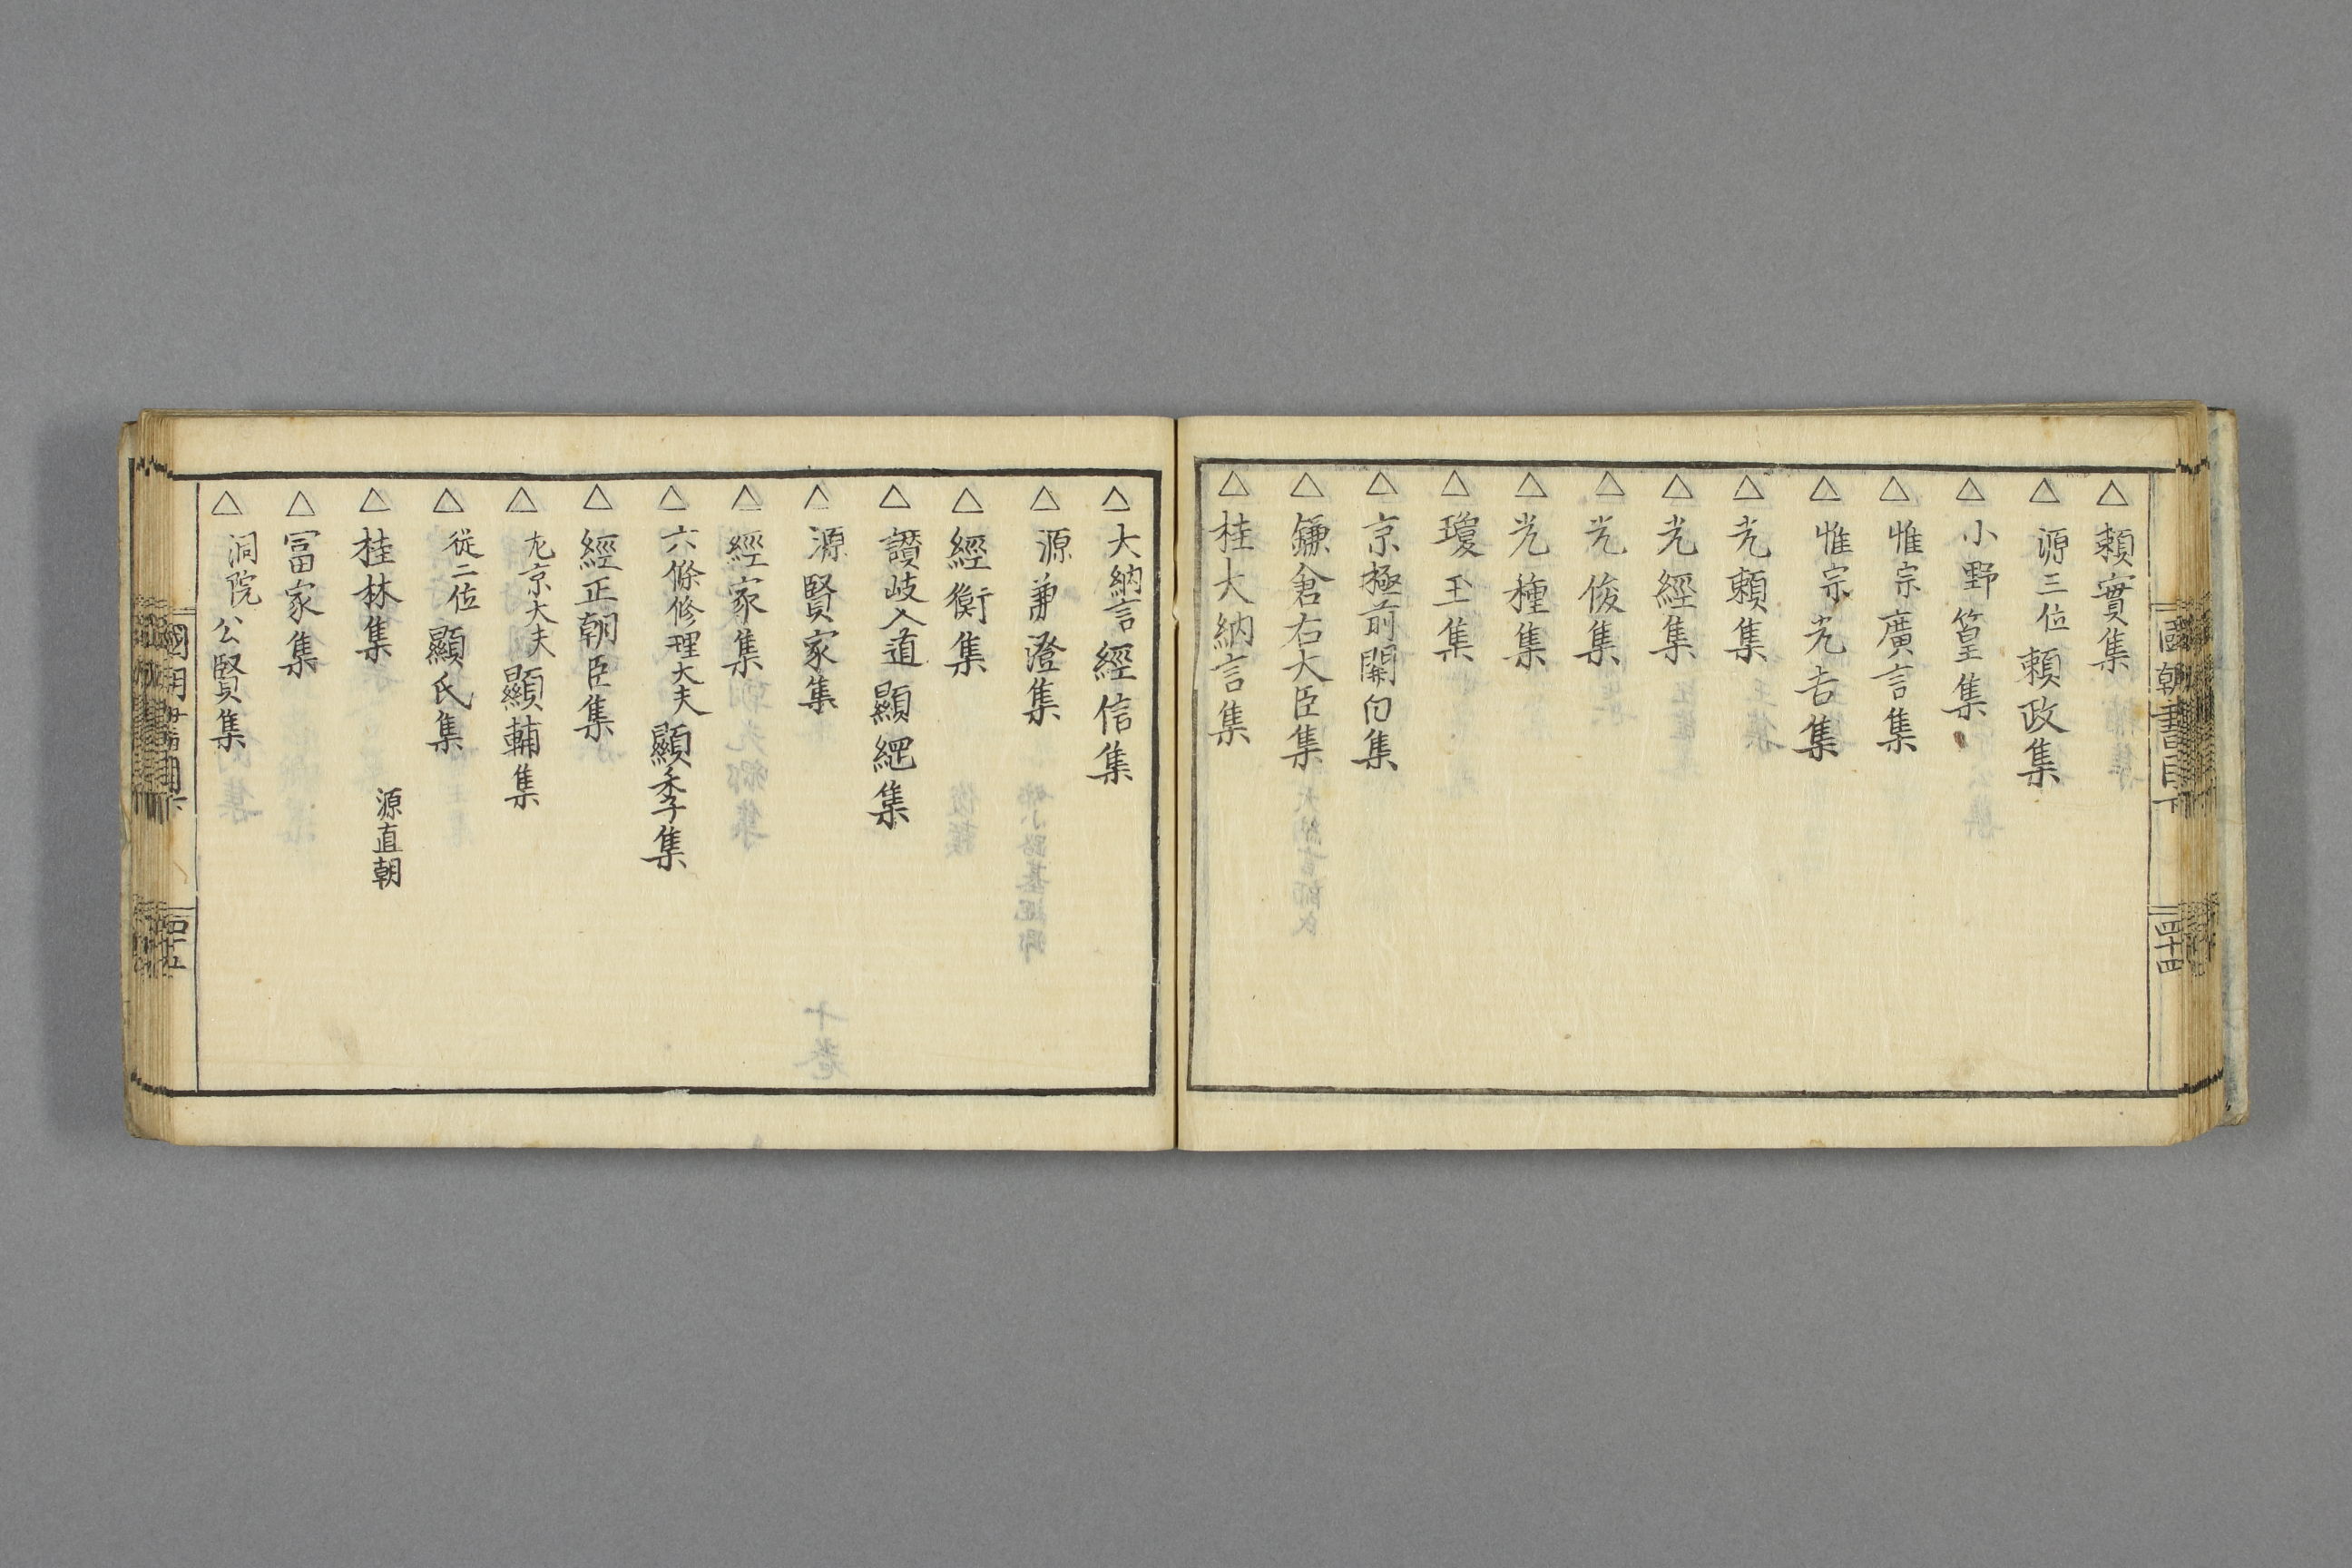 國朝書目下
四十四
△賴實集
△源三位賴政集
△小野篁集
△惟宗廣言集
△惟宗光吉集
△光賴集
△光經集
△光俊集
△光種集
△瓊玉集
△京極前關白集
△鎌倉右大臣集
△桂大納言集
△大納言經信集
△源兼澄集
△經衡集
△讃岐入道顯綱集
△源賢家集
△經家集
△六條修理大夫顯季集
△經正朝臣集
△左京大夫顯輔集
△從二位顯氏集
△桂林集 源直朝
△冨家集
△洞院公賢集
四十五